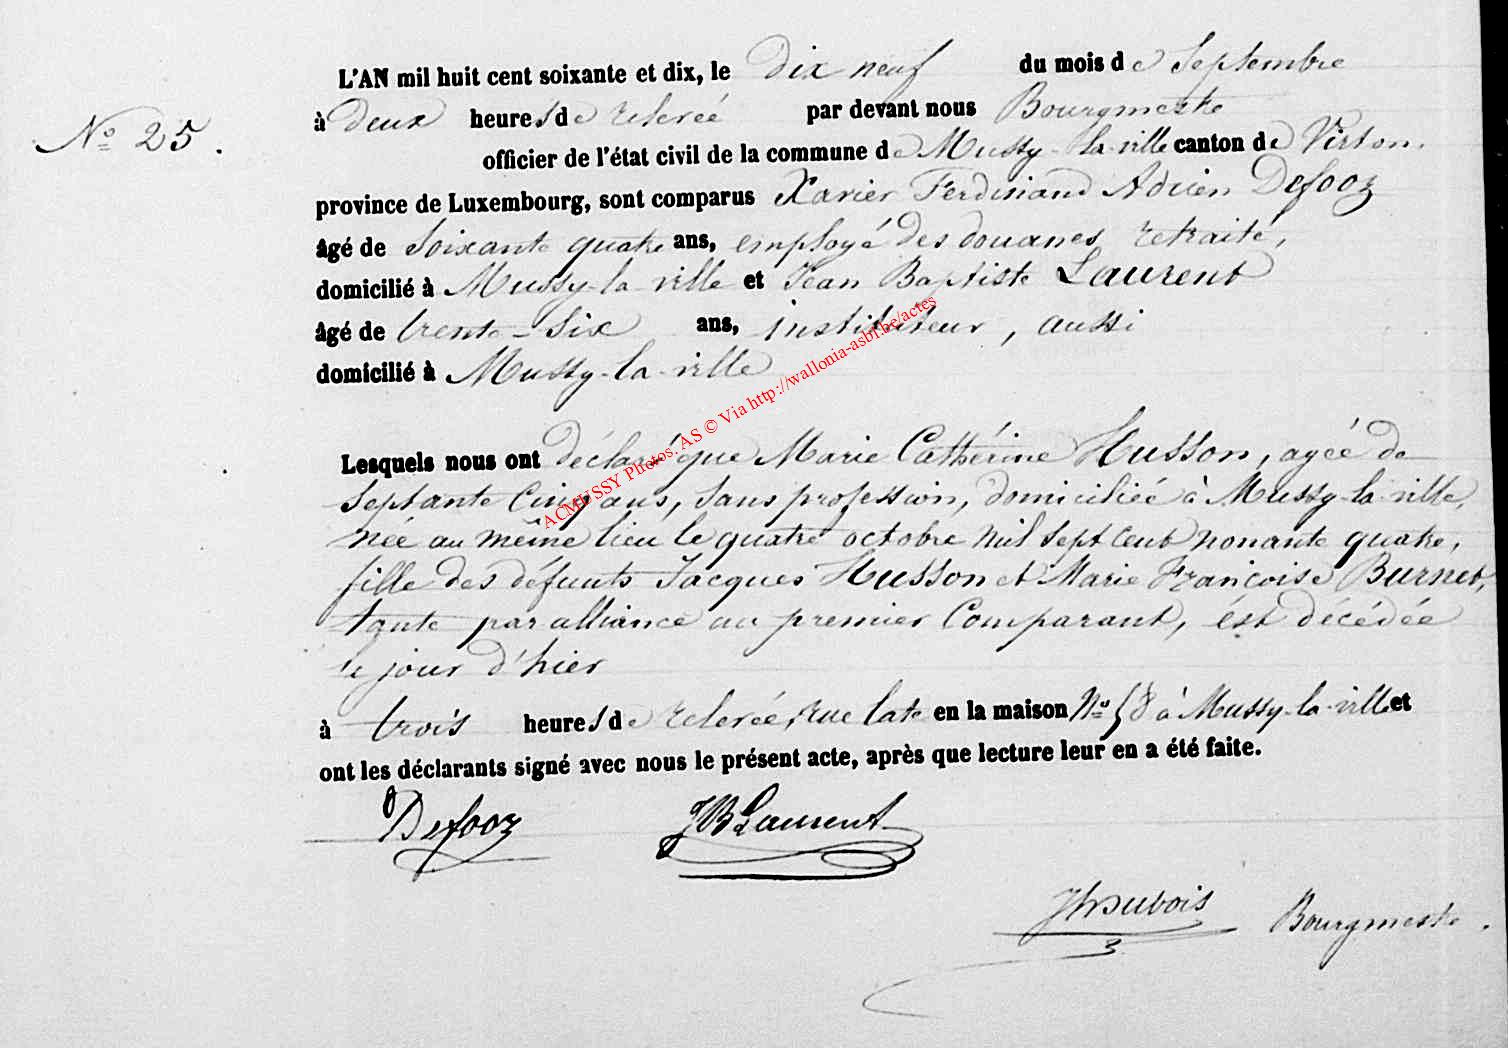 L'AN mil huit cent soixante et dix, le dix neuf du mois de Septembre
à deux heures de relevée par devant nous Bourgmestre
No 25.
officier de l'état civil de la commune de Mussy-la-ville canton de Virton,
province de Luxembourg, sont comparus Xavier Ferdinand Adrien Defooz
âgé de Soixante quatre ans, employé des douanes retraité,
domicilié à Mussy-la-ville et Jean Baptiste Laurent
âgé de trente-Six ans, instituteur, aussi
domicilié à Mussy-la-ville
ACMUSSY Photos. AS © Via http://wallonia-asbl.be/actes
Lesquels nous ont déclaré que Marie Cathérine Husson, agée de
Septante Cinq ans, Sans profession, domiciliée à Mussy-la-ville,
née au même lieu le quatre octobre mil Sept Cent nonante quatre,
fille des défunts Jacques Husson et Marie Françoise Burnet,
tante par alliance au premier Comparant, est décédée
le jour d'hier
à trois heures de relevée, rue late en la maison No 58 à Mussy-la-ville et
ont les déclarants signé avec nous le présent acte, après que lecture leur en a été faite.
Defooz JB Laurent
JhDubois Bourgmestre.